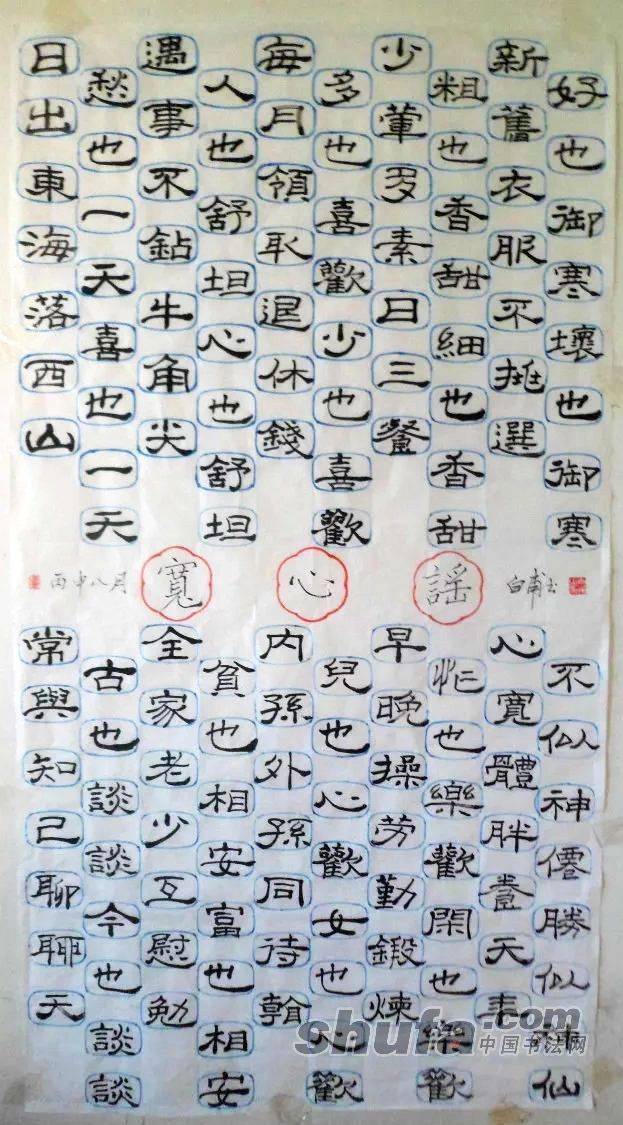 日出東海落西山
愁也一天喜也一天
遇事不鉆牛角尖
人也舒坦心也舒坦
每月領取退休錢
多也喜歡少也喜歡
少葷多素日三餐
粗也香甜細也香甜
新舊衣服不挑選
好也御寒壞也御寒
丙申八月
寬心謠
常與知己聊聊天
古也談談今也談談
全家老少互慰勉
貧也相安富也相安
內孫外孫同待翰
兒也心歡女也心歡
早晚操勞勤鍛煉
忙也樂歡閑也樂歡
心寬體胖養天年
不似神僊勝似神仙
shufa.com
中国书法网